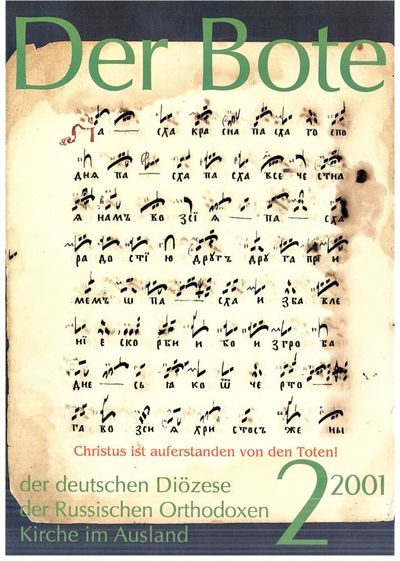 Der Bote
Па сха кра сна па сха го спо
дня па сха па сха все че стна
ѧ намъ во зсїѧ па сха
ра до стї ю другъ дру га при и
мемъ ѡ па сха и зба вле
нї е ско рби и бо и згро ба
дне сь ꙗ ко ѿ че рто
га во зси ѧ хри стосъ же ны
Christus ist auferstanden von den Toten!
der deutschen Diözese
der Russischen Orthodoxen
Kirche im Ausland
2 2001